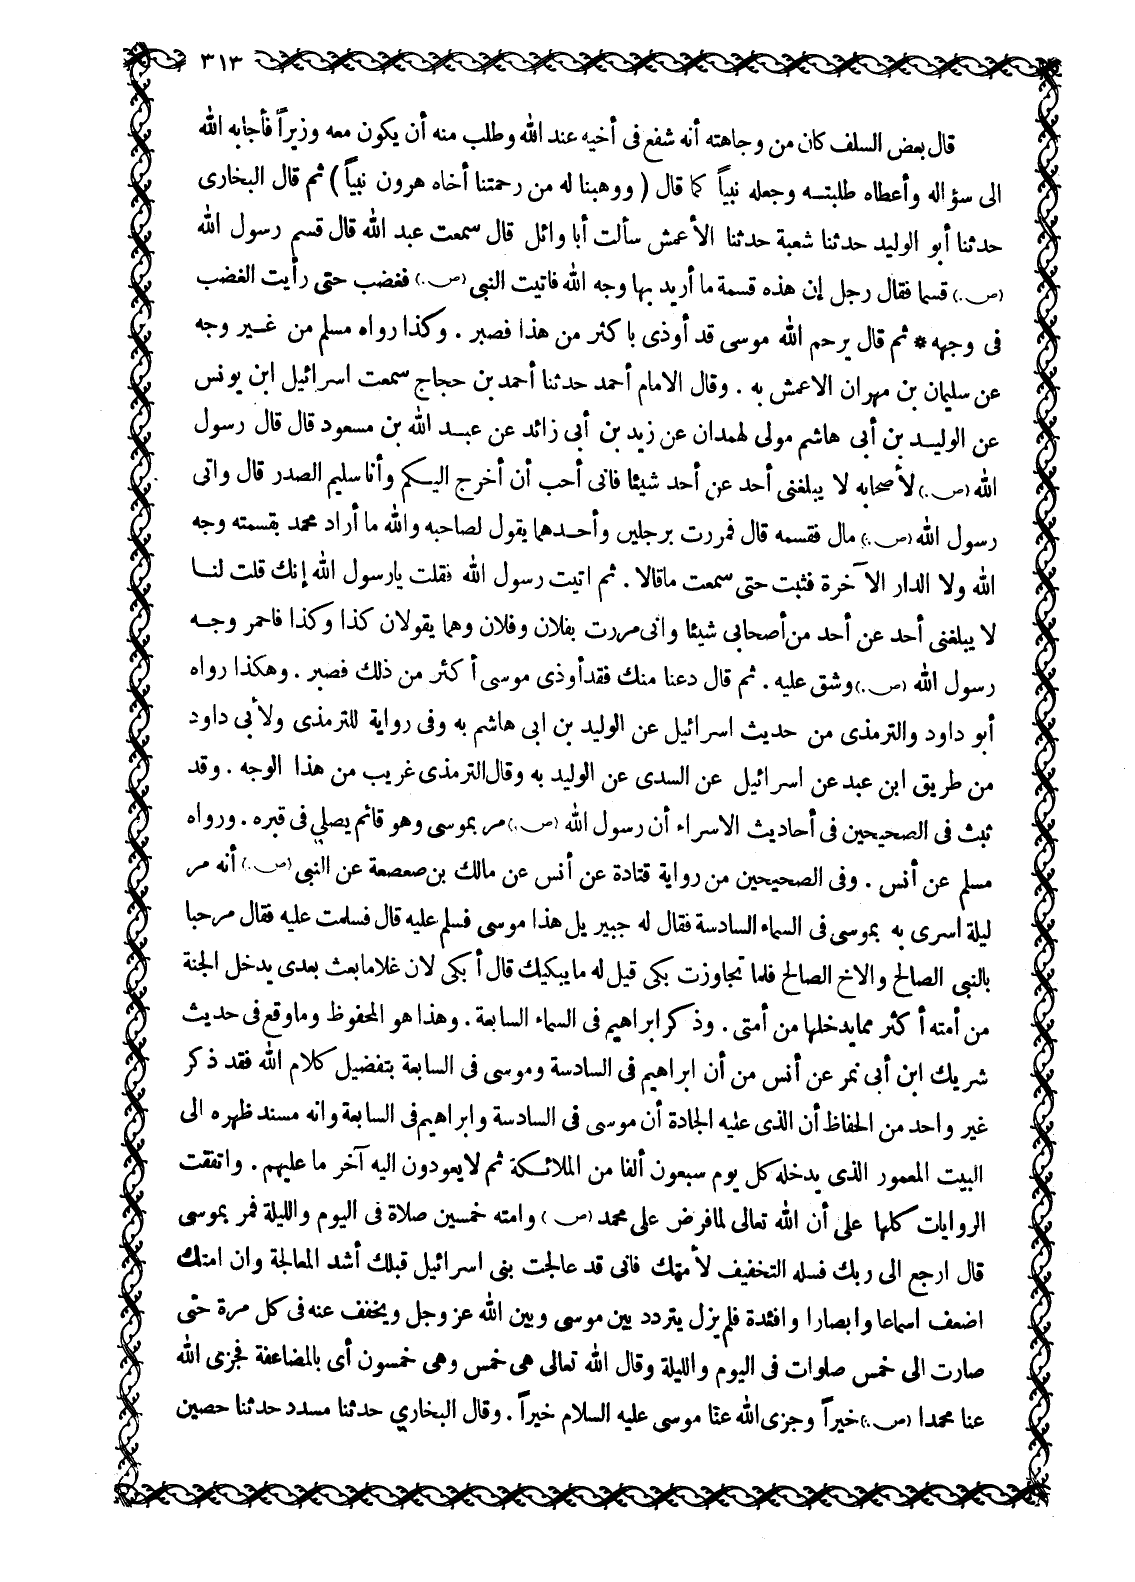 ٣١٣
قال بعض السلف كان من وجاهته أنه شفع فى أخيه عند الله وطلب منه أن يكون معه وزيراً فأجابه الله
الى سؤاله وأعطاه طلبتـــه وجعله نبياً كما قال ( ووهبنا له من رحمتنا أخاه هرون نبياً ) ثم قال البخارى
حدثنا أبو الوليد حدثنا شعبة حدثنا الأعمش سألت أبا وائل قال سمعت عبد الله قال قسم رسول الله
(ص.) قسما فقال رجل إن هذه قسمة ما أريد بها وجه الله فاتيت النبى (ص.) فغضب حتى رأيت الغضب
فى وجهه * ثم قال يرحم الله موسى قد أوذى با كثر من هذا فصبر . وكذا رواه مسلم من غــير وجه
عن سليمان بن مهران الاعمش به . وقال الامام أحمد حدثنا أحمد بن حجاج سمعت اسرائيل ابن يونس
عن الوليــد بن أبى هاشم مولى لهمدان عن زيد بن أبى زائد عن عبــد الله بن مسعود قال قال رسول
الله (ص.) لأصحابه لا يبلغنى أحد عن أحد شيئا فانى أحب أن أخرج اليــكم وأنا سليم الصدر قال واتى
رسول الله (ص.) مال فقسمه قال فمررت برجلين وأحــدهما يقول لصاحبه والله ما أراد محمد بقسمته وجه
الله ولا الدار الآخرة فثبت حتى سمعت ماقالا . ثم اتيت رسول الله فقلت يارسول الله إنك قلت لنــا
لا يبلغنى أحد عن أحد من أصحابى شيئا وانى مررت بفلان وفلان وهما يقولان كذا وكذا فاحمر وجــه
رسول الله (ص.) وشق عليه . ثم قال دعنا منك فقد أوذى موسى أ كثر من ذلك فصبر . وهكذا رواه
أبو داود والترمذى من حديث اسرائيل عن الوليد بن ابى هاشم به وفى رواية للترمذى ولأبى داود
من طريق ابن عبد عن اسرائيل عن السدى عن الوليد به وقال الترمذى غريب من هذا الوجه . وقد
ثبث فى الصحيحين فى أحاديث الاسراء أن رسول الله (ص.) مر بموسى وهو قائم يصلي فى قبره . ورواه
مسلم عن أنس . وفى الصحيحين من رواية قتادة عن أنس عن مالك بن صعصعة عن النبى (ص.) أنه مر
ليلة اسرى به بموسى فى السماء السادسة فقال له جبير يل هذا موسى فسلم عليه قال فسلمت عليه فقال مرحبا
بالنبى الصالح والاخ الصالح فلما تجاوزت بكى قيل له مايبكيك قال أ بكى لان غلاما بعث بعدى يدخل الجنة
من أمته أ كثر ممايدخلها من أمتى . وذ كر ابراهيم فى السماء السابعة . وهذا هو المحفوظ وماوقع فى حديث
شريك ابن أبى نمر عن أنس من أن ابراهيم فى السادسة وموسى فى السابعة بتفضيل كلام الله فقد ذكر
غير واحد من الحفاظ أن الذى عليه الجادة أن موسى فى السادسة وابراهيم فى السابعة وانه مسند ظهره الى
البيت المعمور الذى يدخله كل يوم سبعون ألفا من الملائــكة ثم لا يعودون اليه آخر ما عليهم . واتفقت
الروايات كلها على أن الله تعالى لما فرض على محمد (ص ) وامته خمسين صلاة فى اليوم والليلة فمر بموسى
قال ارجع الى ربك فسله التخفيف لأمتك فانى قد عالجت بنى اسرائيل قبلك أشد المعالجة وان امتك
اضعف اسماعا وابصارا وافئدة فلم يزل يتردد بين موسى وبين الله عز وجل ويخفف عنه فى كل مرة حتى
صارت الى خمس صلوات فى اليوم والليلة وقال الله تعالى هى خمس وهى خمسون أى بالمضاعفة فجزى الله
عنا محمدا (ص.) خيراً وجزى الله عنّا موسى عليه السلام خيراً . وقال البخاري حدثنا مسدد حدثنا حصين